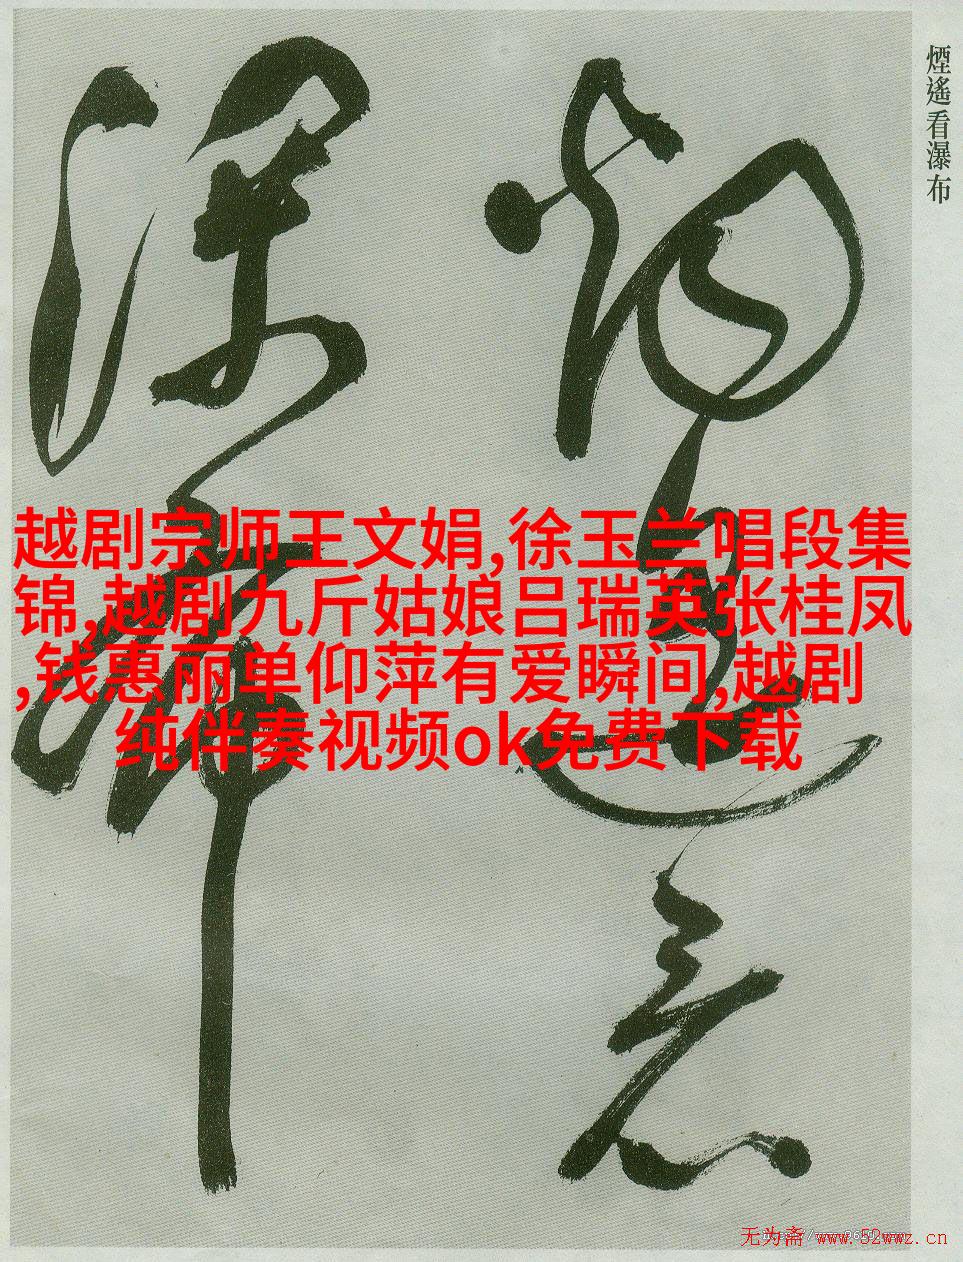 煙遙看瀑布
越剧宗师王文娟,徐玉兰唱段集
锦,越剧九斤姑娘吕瑞英张桂凤
,钱惠丽单仰萍有爱瞬间,越剧
纯伴奏视频ok免费下载
煙遙看
瀑布
无为斋 www.52wwz.cn